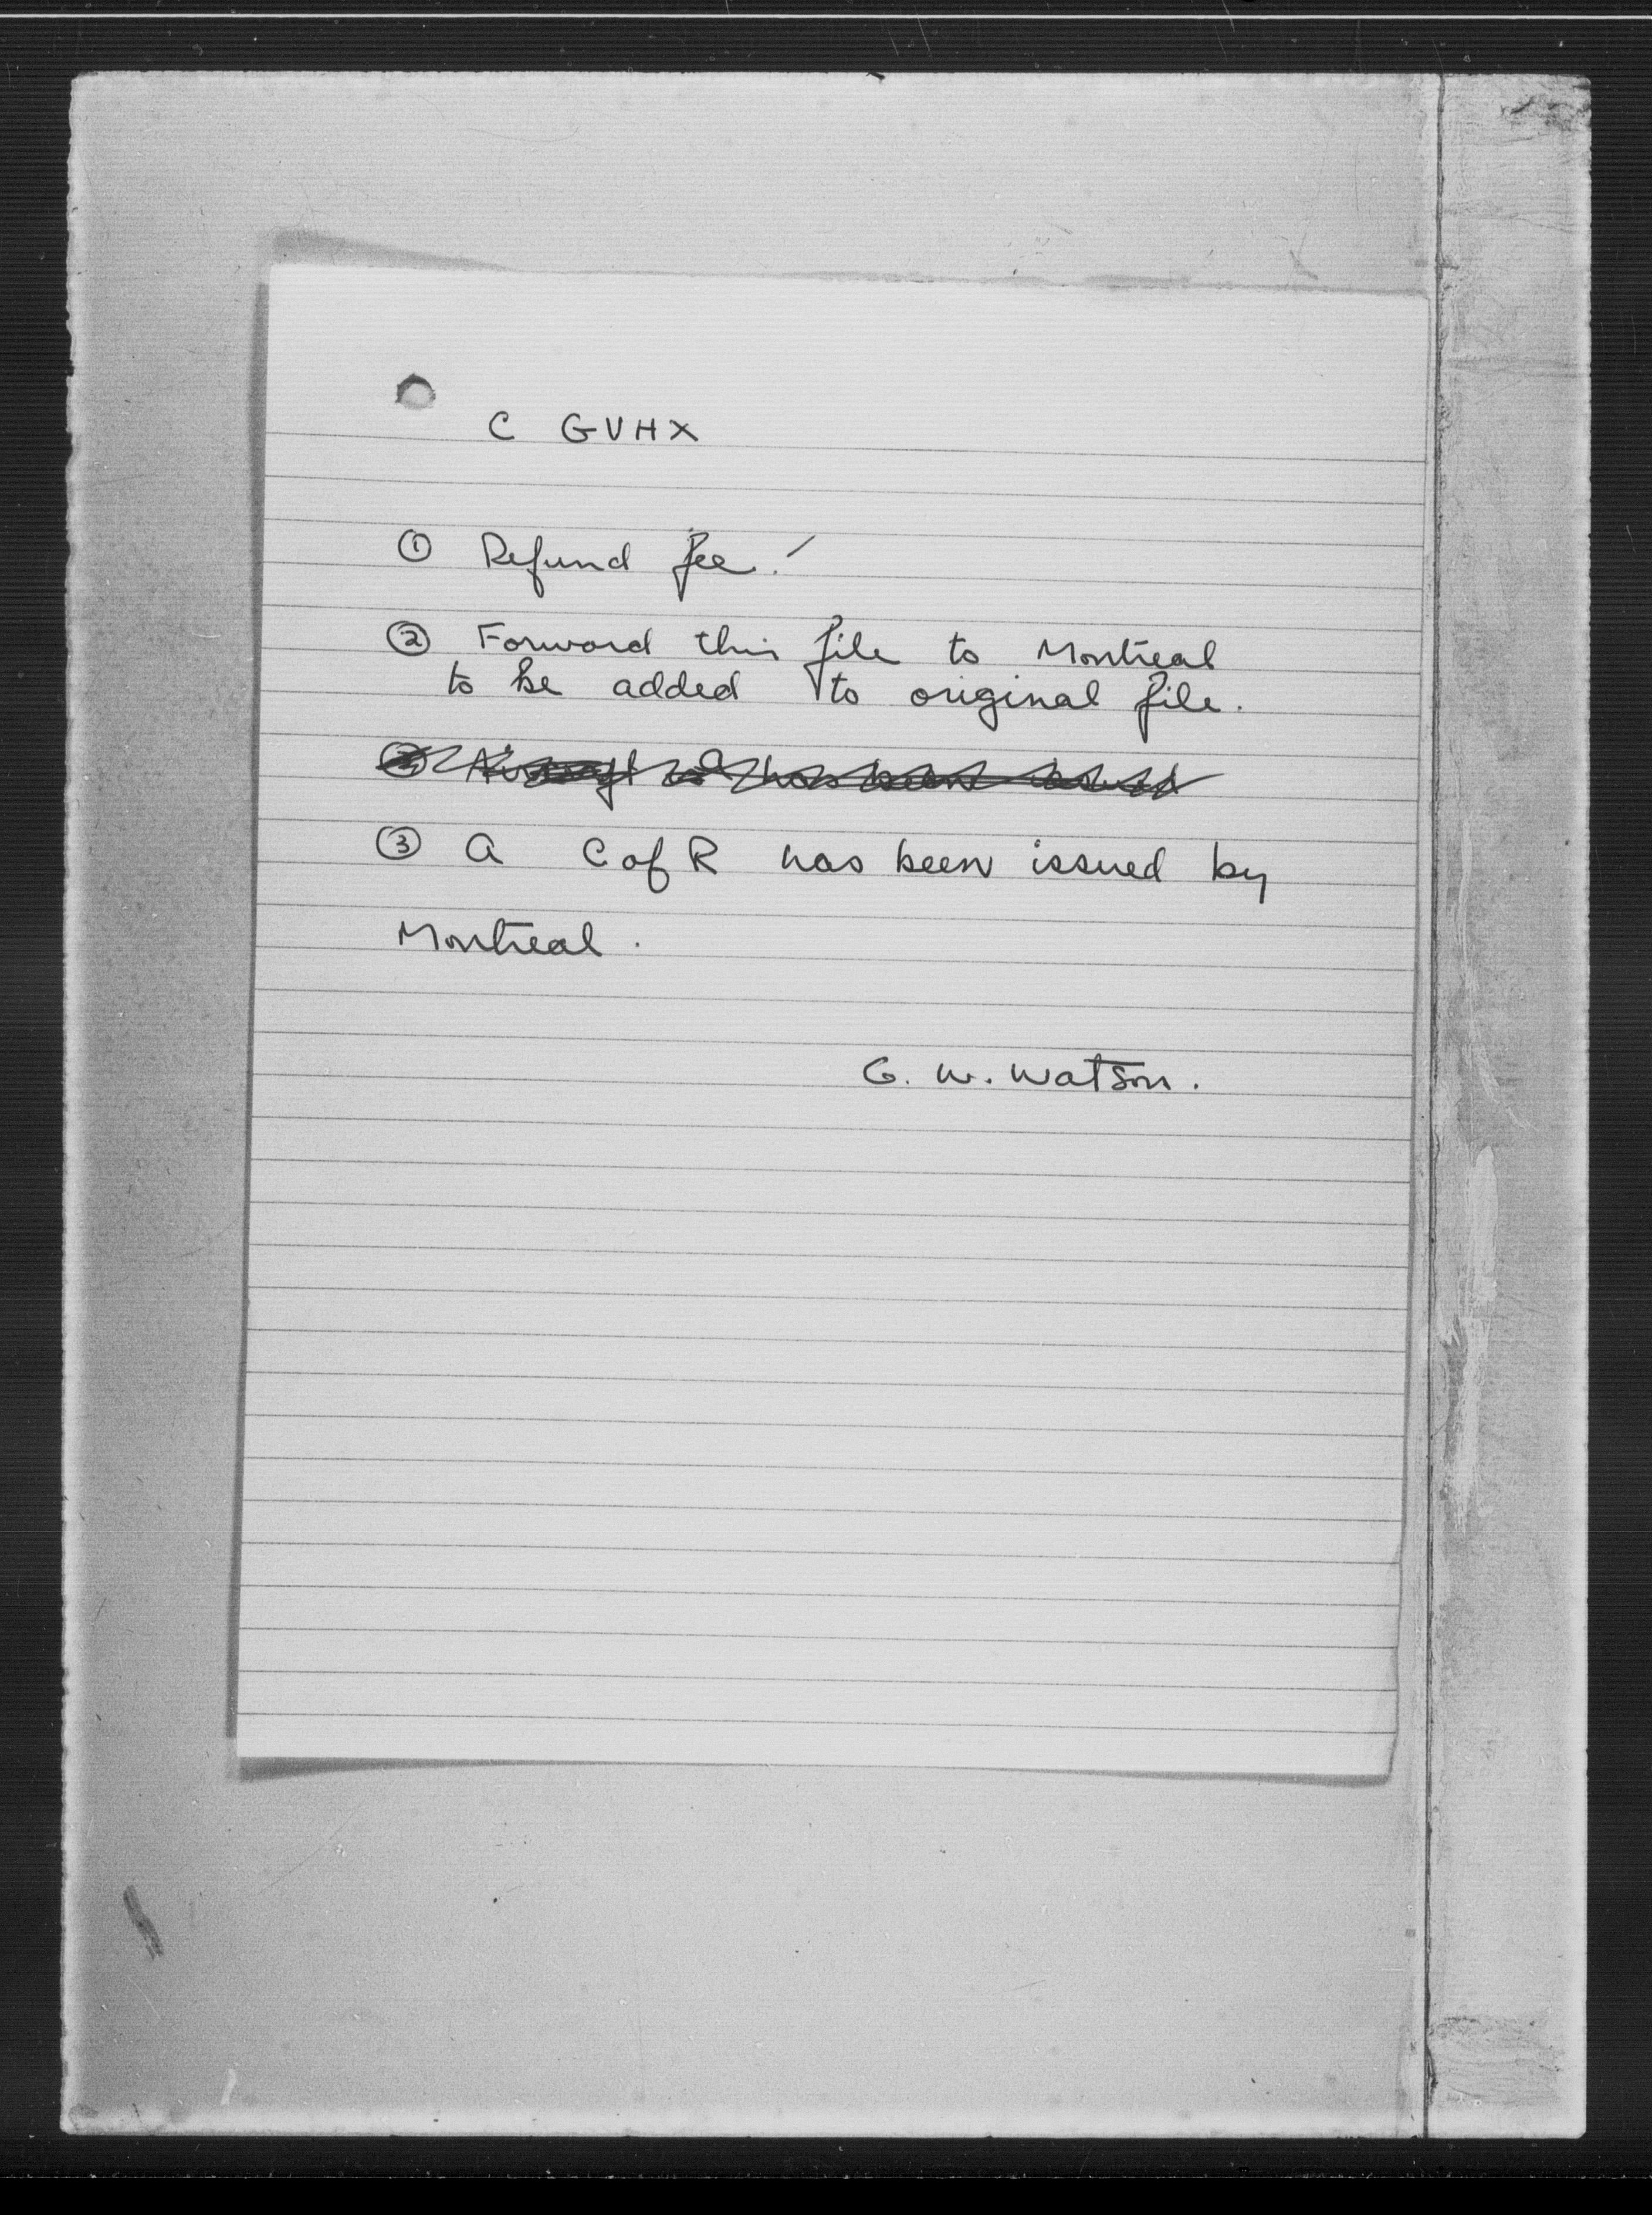 C GVHX
① Refund fee.
② Forward this file to Montreal
to be added to original file.
③ A C of R has been issued by
Montreal.
G. W. Watson.